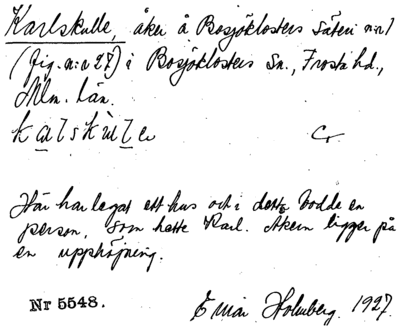 Karlskulle, åker å Bosjöklosters Säteri n:r 1
(fig. n:r 27) i Bosjöklosters Sn., Frosta hd.,
Mlm. län.
kalskùle
Här har legat ett hus och i detta bodde en
person, som hette Karl. Åkern ligger på
en upphöjning.
Nr 5548. Einar Holmberg. 1927.